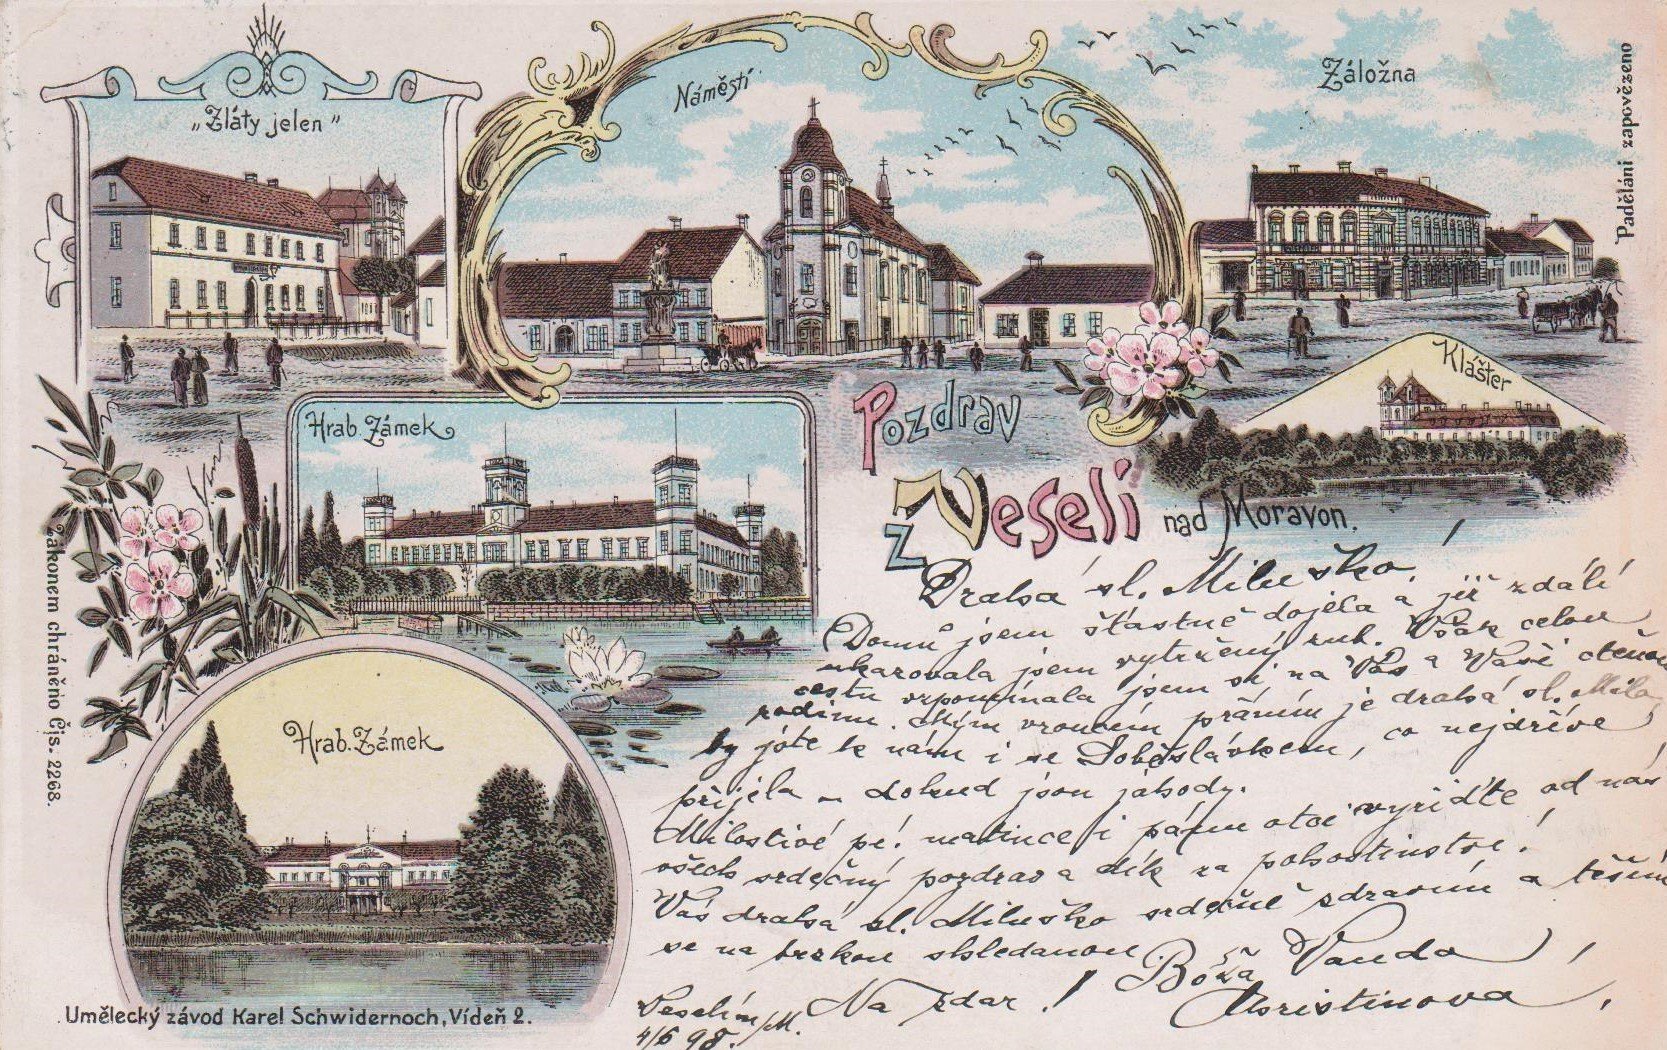 „Zláty jelen"
Náměstí
Záložna
Padělání zapovězeno
Hrab. Zámek
Klášter
Pozdrav
z Veselí nad Moravon.
Zákonem chráněno Čjs. 2268.
Hrab. Zámek
Umělecký závod Karel Schwidernoch, Vídeň 2.
Drahá sl. Miluško!
Domů jsem šťastně dojela a již z dálí
ukazovala jsem vytržený zub. Však celou
cestu vzpomínala jsem si na Vás a Vaší ctěnou
rodinu. Mým vroucím přáním je drahá sl. Milo,
by jste k nám i se Soběslávkem, co nejdříve
přijela – dokud jsou jahody.
Milostivé pí. matince i pánu otci vyriďte od nás
všech srdečný pozdrav a dík za pohostinstvi!
Vás drahá sl. Miluško srdečně zdravím a těším
se na brzkou shledanou
Na zdar! Bóža Vanda
Christinova
Veselím/M.
4/6 98.